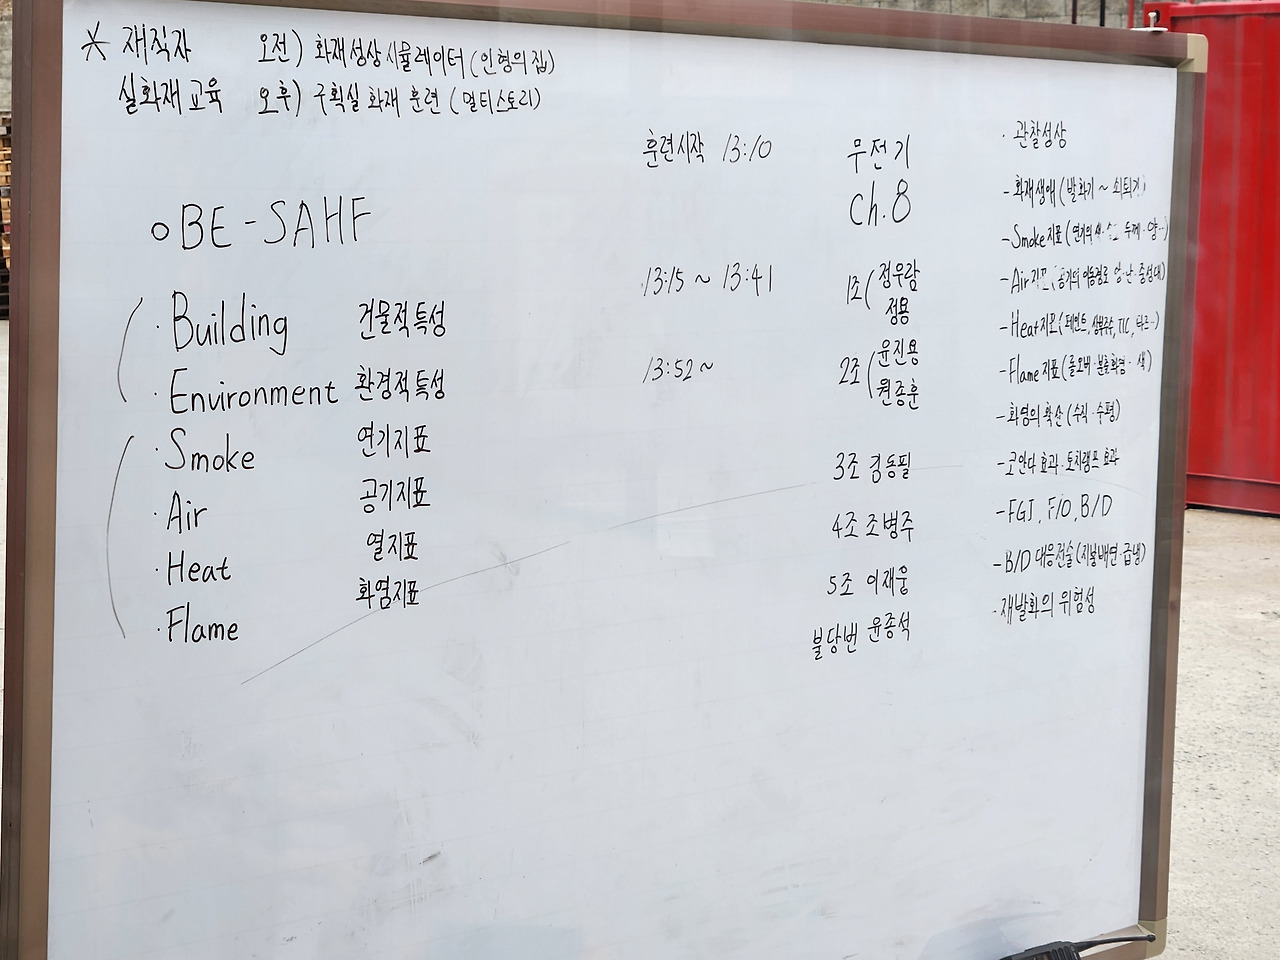 * 재직자 오전) 화재성상시뮬레이터(인형의 집)
실화재교육 오후) 구획실 화재 훈련 (멀티스토리)
○ BE-SAHF
· Building 건물적특성
· Environment 환경적특성
· Smoke 연기지표
· Air 공기지표
· Heat 열지표
· Flame 화염지표
훈련시작 13:10
13:15 ~ 13:41
13:52 ~
무전기
ch.8
1조 ( 정우람
정용
2조 ( 윤진용
원종훈
3조 김동필
4조 조병주
5조 이재웅
불당번 윤종석
· 관찰성상
- 화재생애 (발화기 ~ 쇠퇴기)
- Smoke지표 (연기의 색· 두께·양··)
- Air지표 (공기의 이동경로 중성대)
- Heat지표 (페인트, TIC,
- Flame지표 (롤오버·분출화염· 색)
- 화염의 확산 (수직·수평)
- 코안다 효과·토치램프 효과
- FGI, F/O, B/D
- B/D 대응전술 (지붕배연·급냉)
- 재발화의 위험성